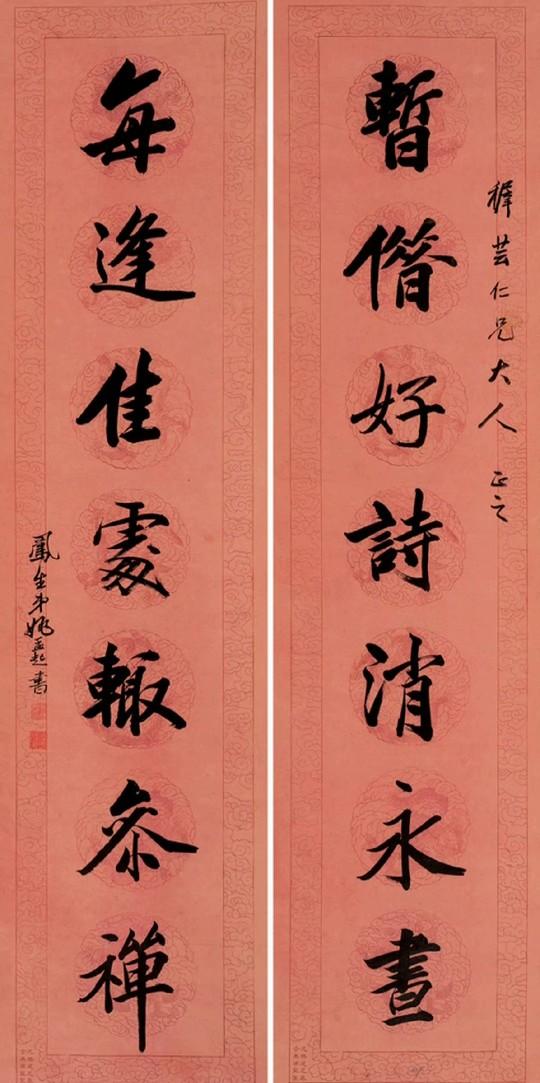 穉芸仁兄大人正之
暫借好詩消永晝
每逢佳處輒參禪
鳳生弟姚孟起書